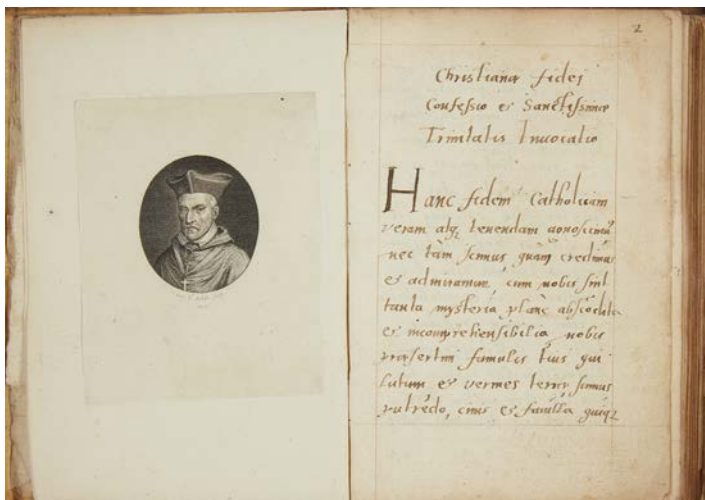 2
Christianæ fidei
Confessio et Sanctissimæ
Trinitatis Invocatio
Hanc fidem Catholicam
veram atq tenendam agnoscimus
nec tam scimus quàm credimus
et admiramur, cum nobis sint
tanta mysteria planè abscondita
et incomprehensibilia nobis
præsertim famulis tuis qui
lutum et vermes terræ sumus
putredo, cinis et favilla quiq